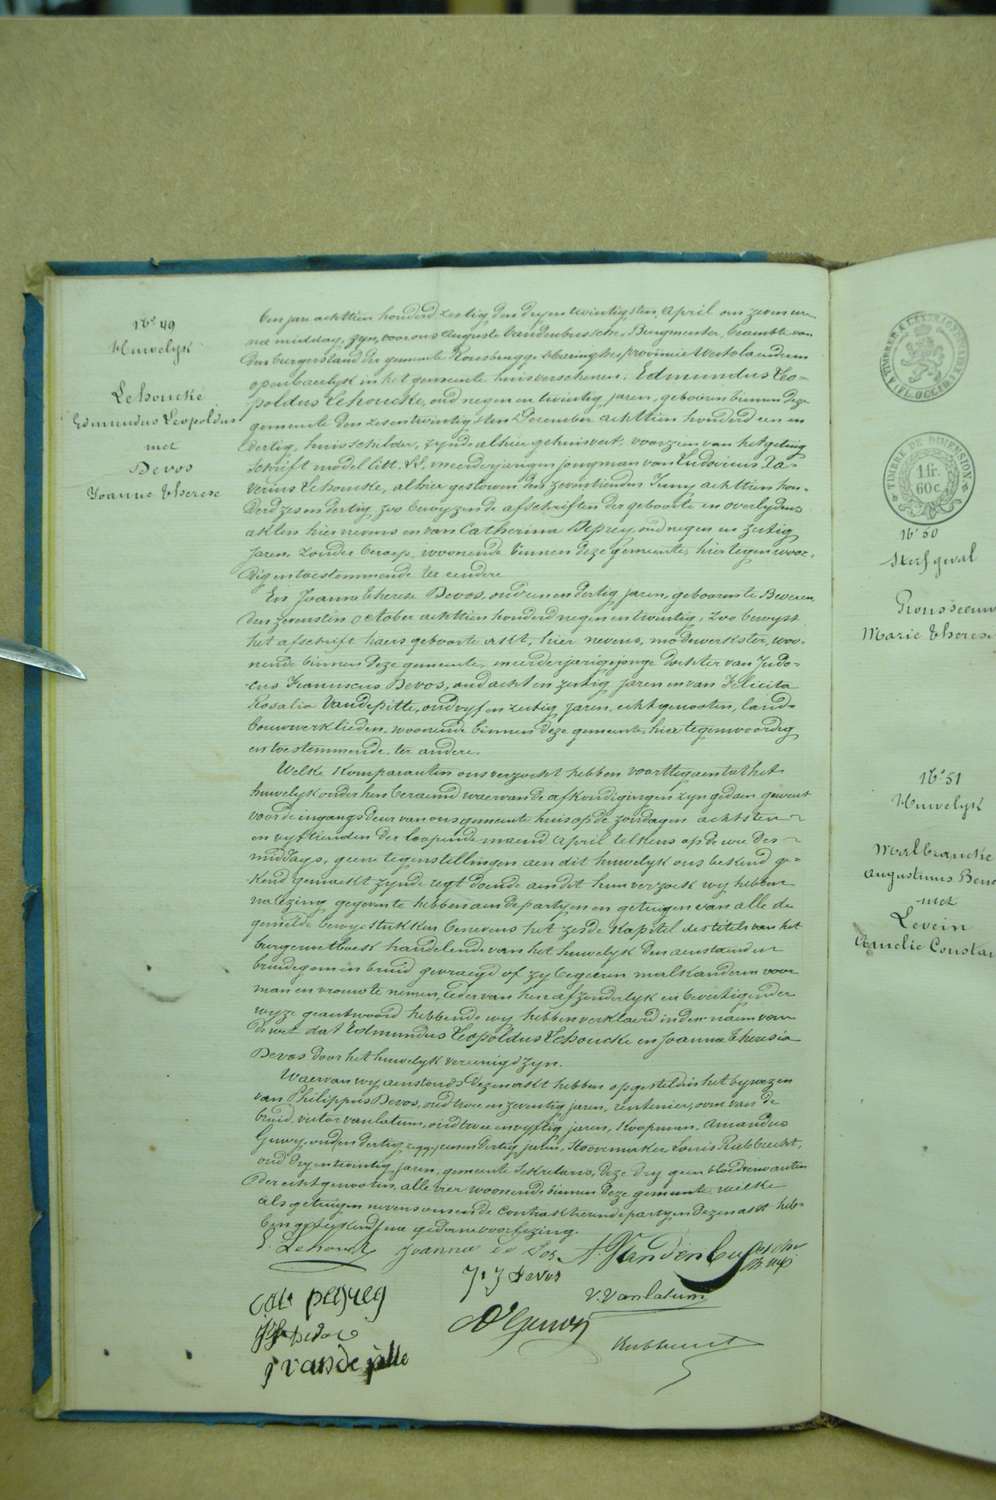 No 49
Huwelyk
Lehoucke
Edmundus Leopoldus
met
Devos
Joanne Therese
Een jaer achttien honderd zestig, den dryentwintigsten April om zeven uren
na middag, zyn, voor ons Auguste Vandenbussche, Burgmeester, beambte van
den burgerstand der gemeente Rousbrugge-Haringhe, provincie Westvlaenderen
openbaerlyk in het gemeente huis verschenen: Edmundus Leo-
poldus Lehoucke, oud negenentwintig jaren, geboren binnen deze
gemeente den zesentwintigsten December achttien honderd een en
dertig, huisschilder, zynde alhier gehuisvest, voorzien van het getuig
schrift model litt. meerderjarigen jongman van Ludovicus Xa-
verius Lehoucke, alhier gestorven den zeventienden Juny achttien hon-
derd zesendertig, zoo bewyzen de afschriften der geboorte en overlydens
akten hier nevens en van Catharina Deprey, oud negen en zestig
jaren zonder beroep, woonende binnen deze gemeente, hier tegenwoor-
dig en toestemmende ter eendere
En Joanna Therese Devos, oud een en dertig jaren, geboren te Beveren
den zevensten october achttien honderd negen en twintig, zoo bewyst
het afschrift haers geboorte akt, hier nevens, modewerkster, woo-
nende binnen deze gemeente, meerderjarige jonge dochter van Judo-
cus Franciscus Devos, oud acht en zestig jaren en van Felicita
Rosalia Vandepitte, oud vyf en zestig jaren, echtgenooten, land-
bouwwerklieden, woonende binnen deze gemeente, hier tegenwoordig
en toestemmende ter andere.
Welke komparanten ons verzocht hebben voorttegaen tot het
huwelyk onder hen beraemd waervan de afkondigingen zyn gedaen geweest
voor de ingangsdeur van ons gemeente huis op de zondagen achtsten
en vyftienden der loopende maend April telkens op de ure des
middags, geene tegenstellingen aen dit huwelyk ons bekend ge-
kend gemaekt zynde regt doende aen dit hun verzoek wy hebben
na lezing gegeven te hebben aen de partyen en getuigen van alle de
gemelde bewysstukken benevens het zesde kapitel des titels van het
burgerwetboek handelende van het huwelyk den aenstaenden
bruidegom en bruid gevraegd of zy begeeren malkanderen voor
man en vrouw te nemen, ieder van hen afzonderlyk en bevestigender
wyze geantwoord hebbende wy hebben verklaerd in den naem van
de wet dat Edmundus Leopoldus Lehoucke en Joanna Theresia
Devos door het huwelyk vereenigd zyn.
Waervan wy aenstonds dezen akt hebben opgesteld in het bywezen
van Philippus Devos, oud twee en zeventig jaren, rentenier, oom van de
bruid, Victor Vanlatum, oud twee en vyftig jaren, koopman, Amandus
Gewy, oud en dertig jaren, Louis Rubbrecht,
oud dryentwintig jaren, gemeente sekretaris, deze dry geen bloedverwanten
der echtgenooten, alle vier woonende binnen deze gemeente welke
als getuigen nevens ons en de contrakterende partyen dezen akt heb-
ben geteekend na gedane voorlezing.
E. Lehoucke Joanna De Vos A. Vandenbussche
J. J. Devos
V. Vanlatum
cat peprey
Rubbrecht
vandepitte
TIMBRE DE DIMENSION
1 fr.
60 c.
No 50
Sterfgeval
Rousseeuw
Marie Therese
No 51
Huwelyk
Malbrancke
Augustinus Bene
met
Levein
Amelie Constan